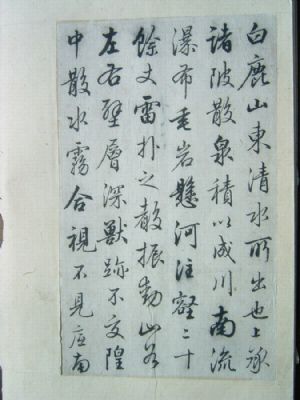 白鹿山東清水所出也上承
諸陂散泉積以成川南流
瀑布垂岩懸河注壑二十
餘丈雷扑之聲振動山谷
左右壁層深獸跡不交隍
中散水霧合視不見底南